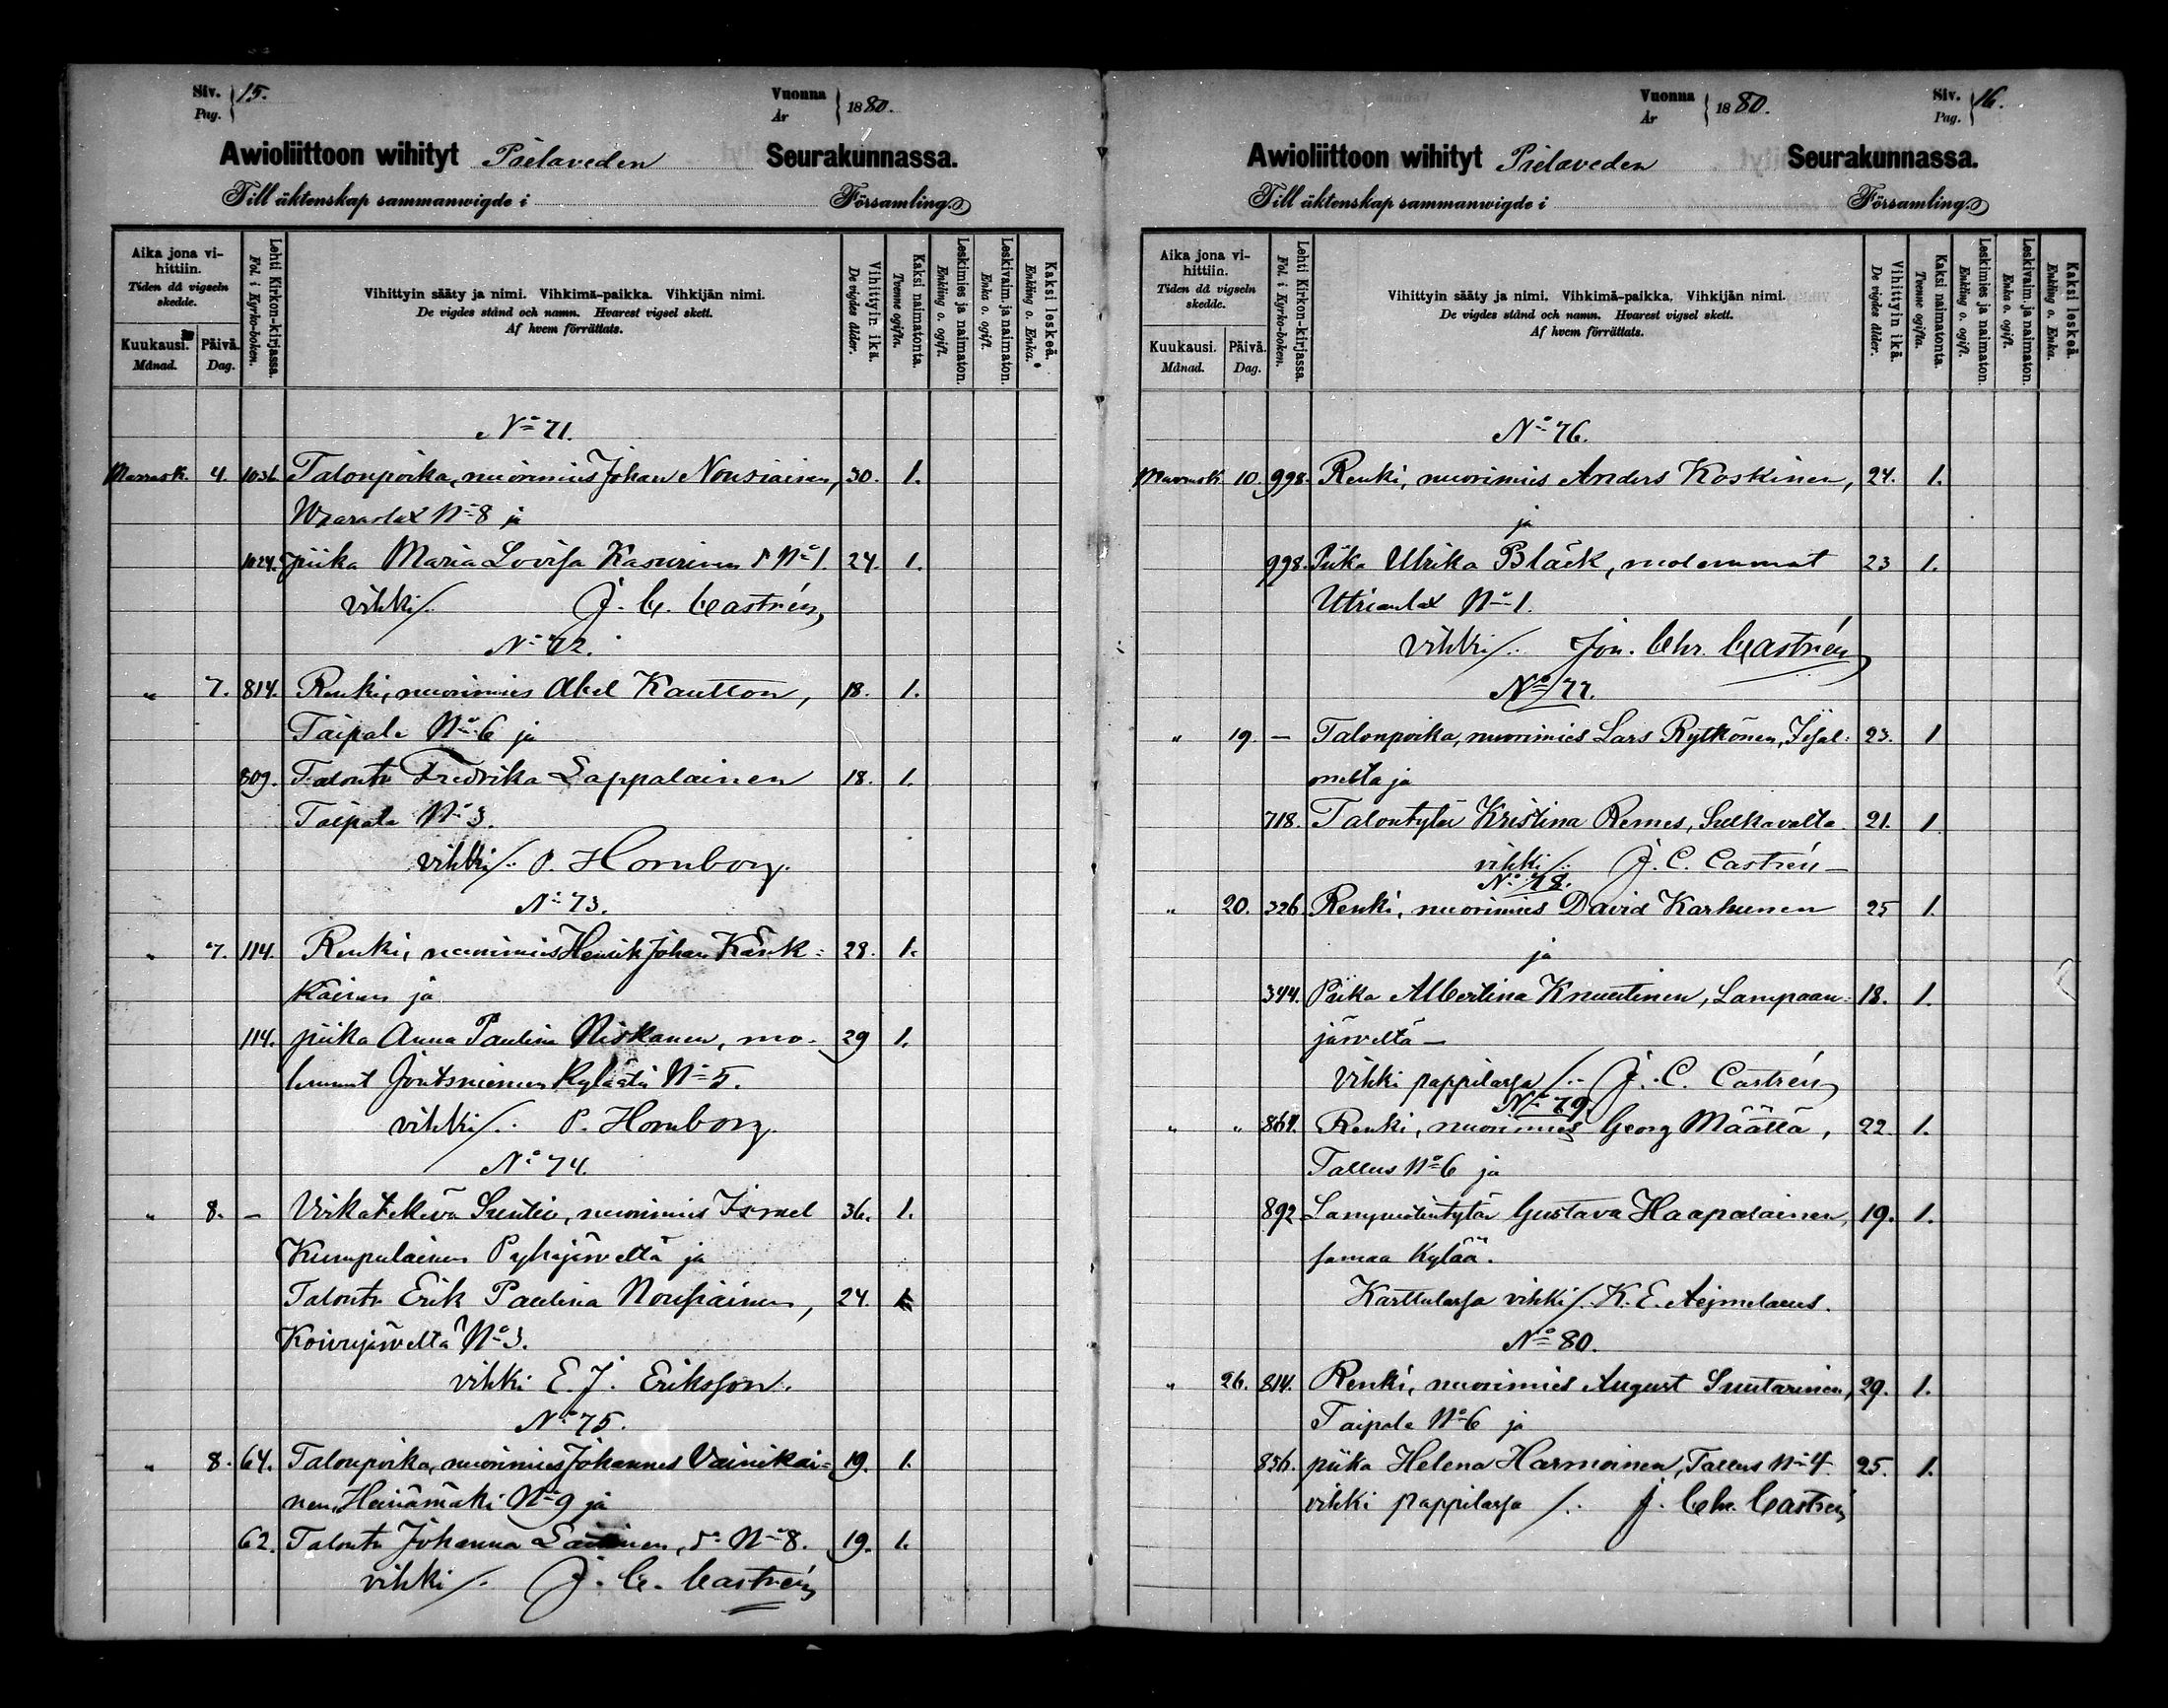 Siv. 15.
Pag.
Vuonna 1880.
År
Awioliittoon wihityt Pielaveden Seurakunnassa.
Till äktenskap sammanwigde i Församling.
Aika jona vihittiin.
Tiden då vigseln skedde.
Kuukausi. Månad.
Päivä. Dag.
Lehti Kirkon-kirjassa.
Fol. i Kyrko-boken.
Vihittyin sääty ja nimi. Vihkimä-paikka. Vihkijän nimi.
De vigdes stånd och namn. Hvarest vigsel skett.
Af hvem förrättats.
Vihittyin ikä.
De vigdes ålder.
Kaksi naimatonta.
Tvenne ogifta.
Leskimies ja naimaton.
Enkling o. ogift.
Leskivaim. ja naimaton.
Enka o. ogift.
Kaksi leskeä.
Enkling o. Enka.
No 71.
Marrask. 4. 1036. Talonpoika, nuorimies Johan Nousiainen, 30. 1.
Waaraslax No 8 ja
1024. piika Maria Lovisa Kasurinen No 1. 24. 1.
vihki /. J. C. Castrén
No 72.
" 7. 814. Renki, nuorimies Abel Kautton, 18. 1.
Taipale No 6 ja
809. Talontr Fredrika Lappalainen 18. 1.
Taipale No 3.
vihki /. P. Hornborg.
No 73.
" 7. 114. Renki, nuorimies Henrik Johan Känk= 28. 1.
käinen ja
114. piika Anna Paulina Niskanen, mo- 29 1.
lemmat Joutsniemen kylästä No 5.
vihki /. P. Hornborg.
No 74.
" 8. – Virkatekevä Suntio, nuorimies Israel 36. 1.
Kumpulainen Pyhäjärveltä ja
Talontr Erik Paulina Nousiainen, 24. 1.
Koivujärveltä No 3.
vihki E. J. Eriksson.
No 75.
" 8. 64. Talonpoika, nuorimies Johannes Vainikai= 19. 1.
nen, Heinämäki No 9 ja
62. Talontr Johanna Laitinen, No 8. 19. 1.
vihki /. J. C. Castrén
Vuonna 1880.
År
Siv. 16.
Pag.
Awioliittoon wihityt Pielaveden Seurakunnassa.
Till äktenskap sammanwigde i Församling.
Aika jona vihittiin.
Tiden då vigseln skedde.
Kuukausi. Månad.
Päivä. Dag.
Lehti Kirkon-kirjassa.
Fol. i Kyrko-boken.
Vihittyin sääty ja nimi. Vihkimä-paikka. Vihkijän nimi.
De vigdes stånd och namn. Hvarest vigsel skett.
Af hvem förrättats.
Vihittyin ikä.
De vigdes ålder.
Kaksi naimatonta.
Tvenne ogifta.
Leskimies ja naimaton.
Enkling o. ogift.
Leskivaim. ja naimaton.
Enka o. ogift.
Kaksi leskeä.
Enkling o. Enka.
No 76.
Marrask. 10. 998. Renki, nuorimies Anders Koskinen, 24. 1.
ja
998. Piika Ulrika Bläck, molemmat 23 1.
Utrianlax No 1.
vihki /. Joh. Chr. Castrén
No 77.
" 19. – Talonpoika, nuorimies Lars Rytkönen, Iisal= 23. 1
melta ja
718. Talontytär Kristina Remes, Sulkavalta 21. 1
vihki /. J. C. Castrén –
No 78.
" 20. 326 Renki, nuorimies David Karhunen 25 1.
ja
344. Piika Albertina Knuutinen, Lampaan= 18. 1.
järveltä –
vihki pappilassa /. J. C. Castrén
No 79.
" " 864. Renki, nuorimies Georg Määttä, 22. 1.
Tallus No 6 ja
892 Lampuotintytär Gustava Haapalainen, 19. 1.
samaa kylää.
Karttulassa vihki /. K. E. Aejmelaeus.
No 80.
" 26. 814. Renki, nuorimies August Suutarinen, 29. 1.
Taipale No 6 ja
856. piika Helena Harmoinen, Tallus No 4. 25. 1.
vihki pappilassa /. J. Chr. Castrén